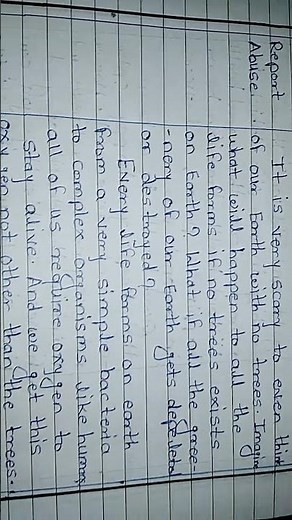 Report It is very scary to even think
Abuse of our Earth with no trees. Imagine
what will happen to all the
life forms if no trees exists
on Earth? What if all the gree-
-nery of our Earth gets depeleted
or destroyed?
Every life forms on earth
from a very simple bacteria
to complex organisms like humans
all of us require oxygen to
stay alive. And we get this
oxygen not other than the trees.